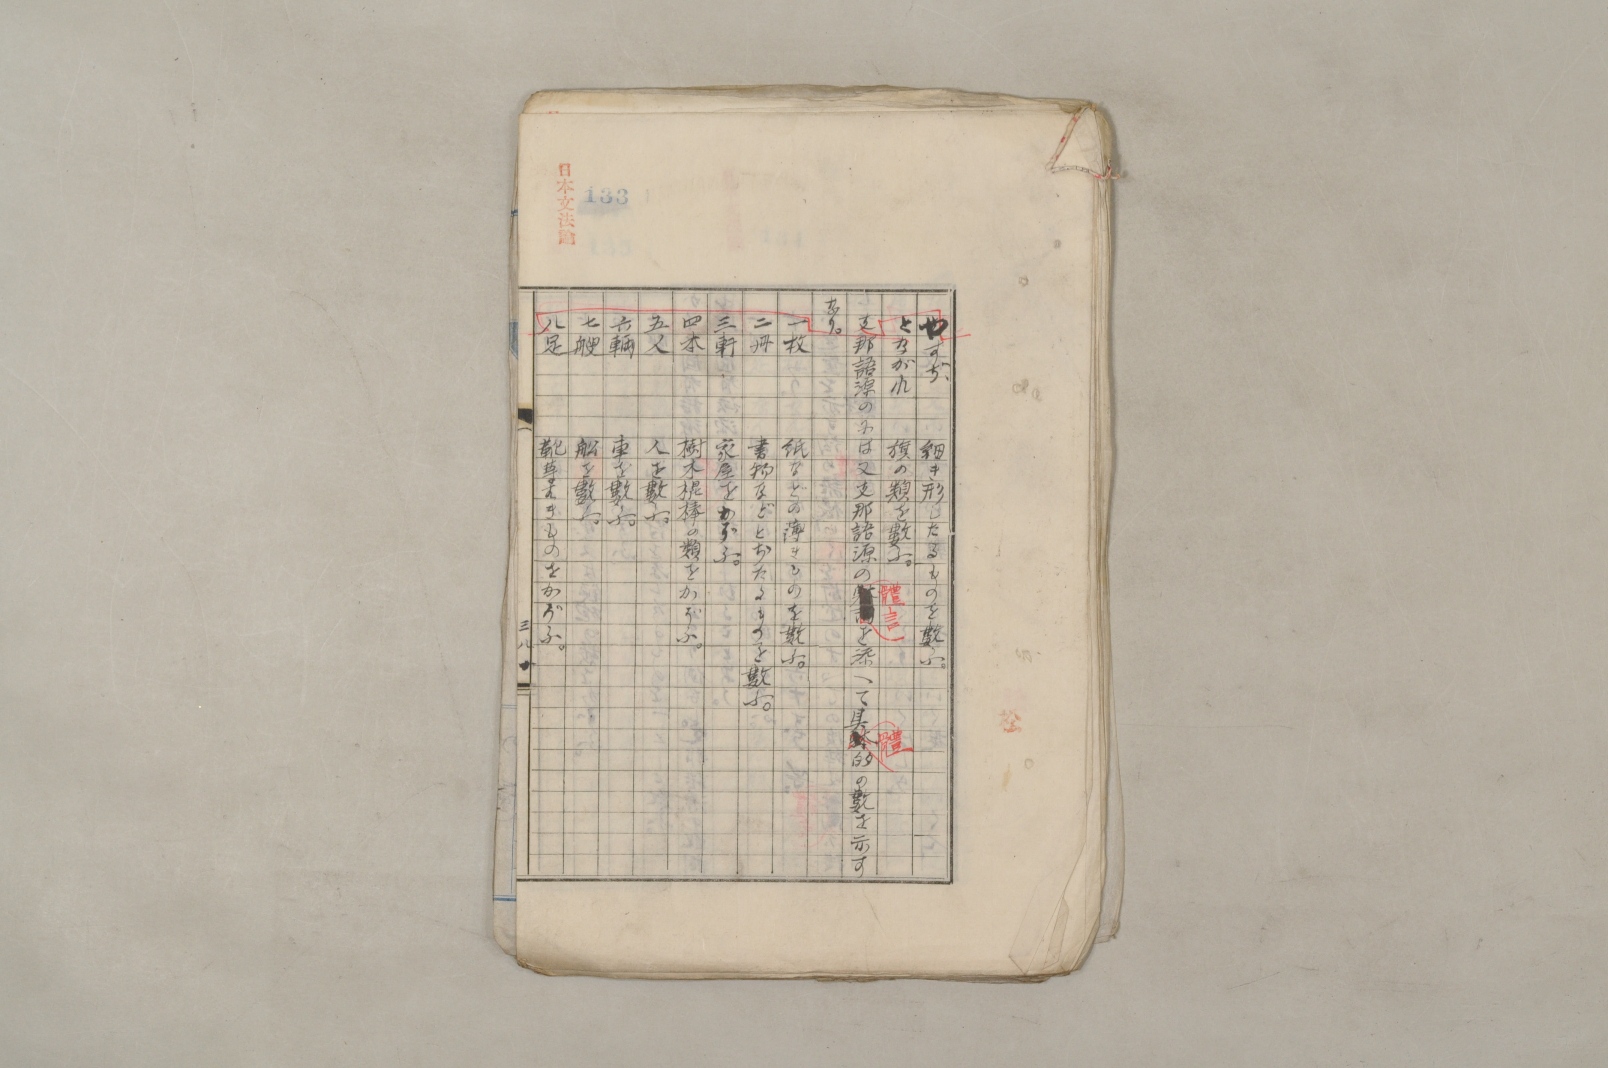 日本文法論
133
やすぢ、 細き形したるものを數ふ。
とながれ 旗の類を數ふ。
支那語源のには又支那語源の體言を添へて具體的の數を示す
なり。
一枚 紙などの薄きものを數ふ。
二冊 書籍などとぢたるものを數ふ。
三軒 家屋をかぞふ。
四本 樹木棍棒の類をかぞふ。
五人 人を數ふ。
六輛 車を數ふ。
七艘 船を數ふ。
八足 靴草きものをかぞふ。
三八十